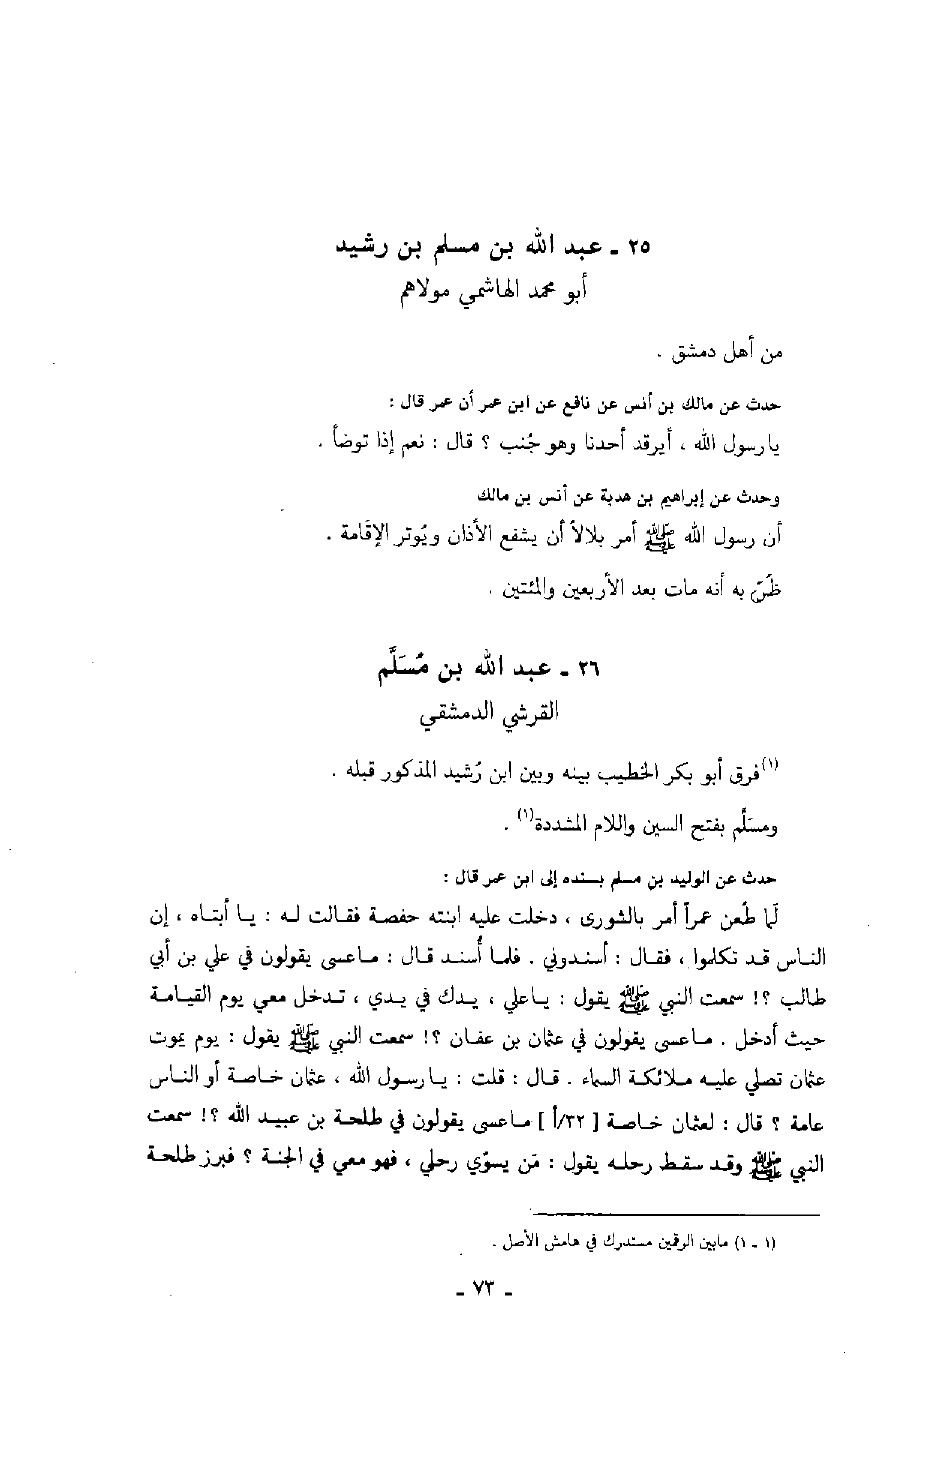 ٢٥ - عبد الله بن مسلم بن رشيد
أبو محمد الهاشمي مولاهم
من أهل دمشق .
حدث عن مالك بن أنس عن نافع عن ابن عمر أن عمر قال :
يارسول الله ، أيرقد أحدنا وهو جُنب ؟ قال : نعم إذا توضأ .
وحدث عن إبراهيم بن هدبة عن أنس بن مالك
أن رسول الله ﷺ أمر بلالاً أن يشفع الأذان ويُوتر الإقامة .
ظُنّ به أنه مات بعد الأربعين والمئتين .
٢٦ - عبد الله بن مُسَلَّم
القرشي الدمشقي
(١)فرق أبو بكر الخطيب بينه وبين ابن رُشيد المذكور قبله .
ومسلَّم بفتح السين واللام المشددة(١) .
حدث عن الوليد بن مسلم بسنده إلى ابن عمر قال :
لما طُعن عمرأ أمر بالشورى ، دخلت عليه ابنته حفصة فقالت له : يا أبتاه ، إن
الناس قد تكلموا ، فقال : أسندوني . فلما أُسند قال : ماعسى يقولون في علي بن أبي
طالب ؟! سمعت النبي ﷺ يقول : ياعلي ، يدك في يدي ، تدخل معي يوم القيامة
حيث أدخل . ماعسى يقولون في عثمان بن عفان ؟! سمعت النبي ﷺ يقول : يوم يموت
عثمان تصلي عليه ملائكة السماء . قال : قلت : يارسول الله ، عثمان خاصة أو الناس
عامة ؟ قال : لعثمان خاصة [ ٣٢/أ ] ماعسى يقولون في طلحة بن عبيد الله ؟! سمعت
النبي ﷺ وقد سقط رحله يقول : مَن يسوّي رحلي ، فهو معي في الجنة ؟ فبرز طلحة
(١ - ١) مابين الرقمين مستدرك في هامش الأصل .
- ٧٣ -